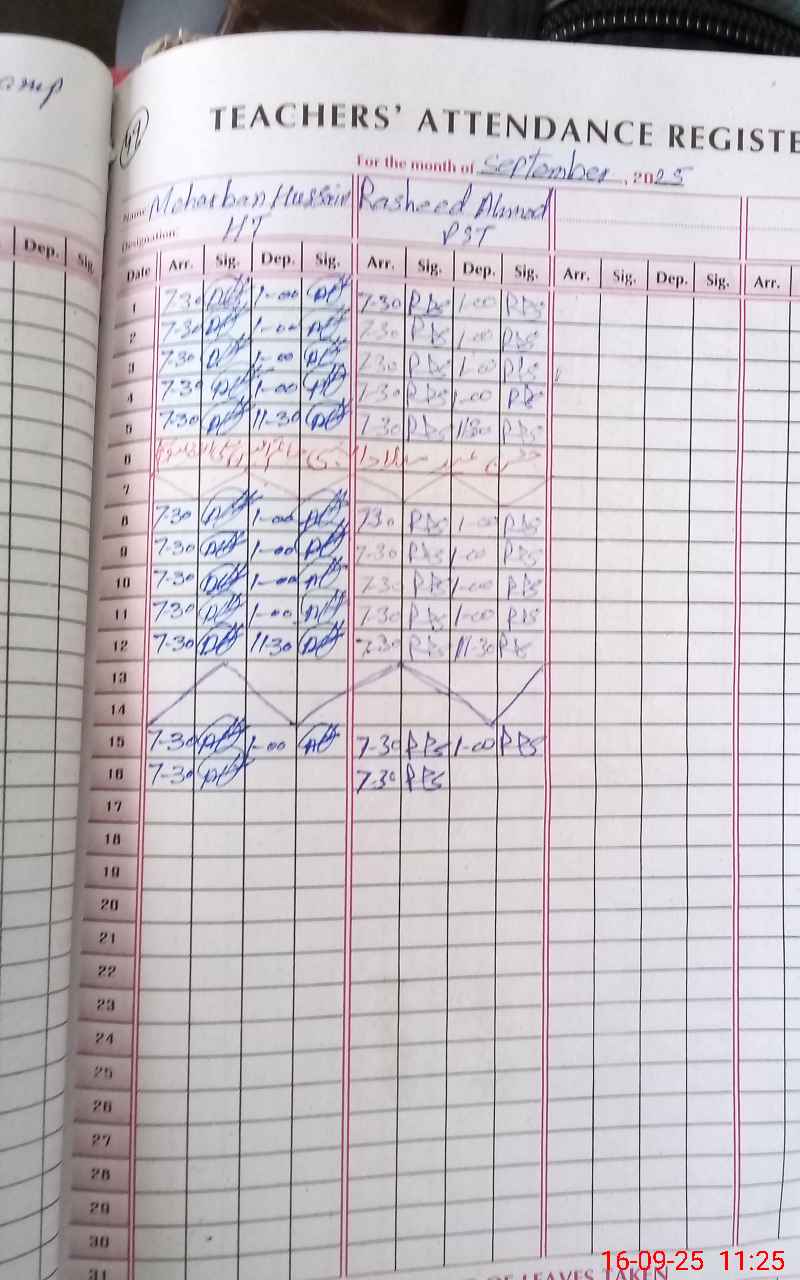 amp
42
TEACHERS' ATTENDANCE REGISTE
For the month of September, 2025
Name Meharban Hussain Rasheed Ahmad
Designation HT PST
Dep. Sig. Date Arr. Sig. Dep. Sig. Arr. Sig. Dep. Sig. Arr. Sig. Dep. Sig. Arr.
1 7-30 1-00 7-30 RBS 1-00 RBS
2 7-30 1-00 7-30 RBS 1-00 RBS
3 7-30 1-00 7-30 RBS 1-00 RBS
4 7-30 1-00 7-30 RBS 1-00 RBS
5 7-30 11-30 7-30 RBS 11-30 RBS
6
7
8 7-30 1-00 7-30 RBS 1-00 RBS
9 7-30 1-00 7-30 RBS 1-00 RBS
10 7-30 1-00 7-30 RBS 1-00 RBS
11 7-30 1-00 7-30 RBS 1-00 RBS
12 7-30 11-30 7-30 RBS 11-30 RBS
13
14
15 7-30 1-00 7-30 RBS 1-00 RBS
16 7-30 7-30 RBS
17
18
19
20
21
22
23
24
25
26
27
28
29
30
31
OF LEAVES TAKEN
16-09-25 11:25